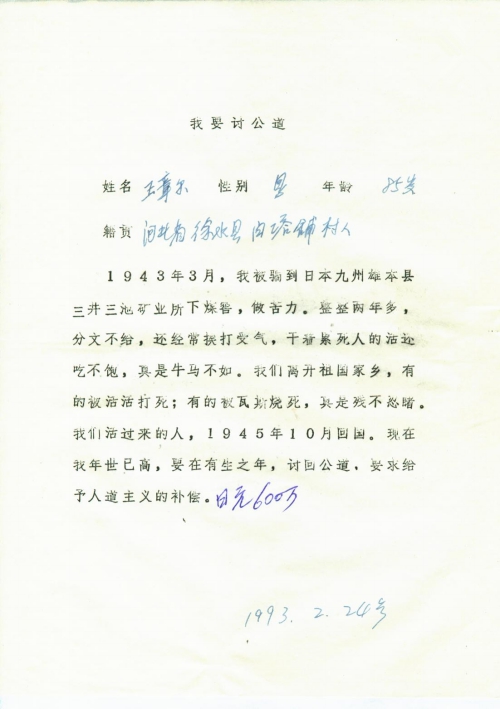 我要讨公道
姓名 王章尔 性别 男 年龄 85岁
籍贯 河北省徐水县白塔铺村人
1943年3月，我被骗到日本九州雄本县
三井三池矿业所下煤窑，做苦力。整整两年多，
分文不给，还经常挨打受气，干着累死人的活还
吃不饱，真是牛马不如。我们离开祖国家乡，有
的被活活打死；有的被瓦斯烧死，真是残不忍睹。
我们活过来的人，1945年10月回国。现在
我年世已高，要在有生之年，讨回公道，要求给
予人道主义的补偿。日元600万
1993. 2. 24号